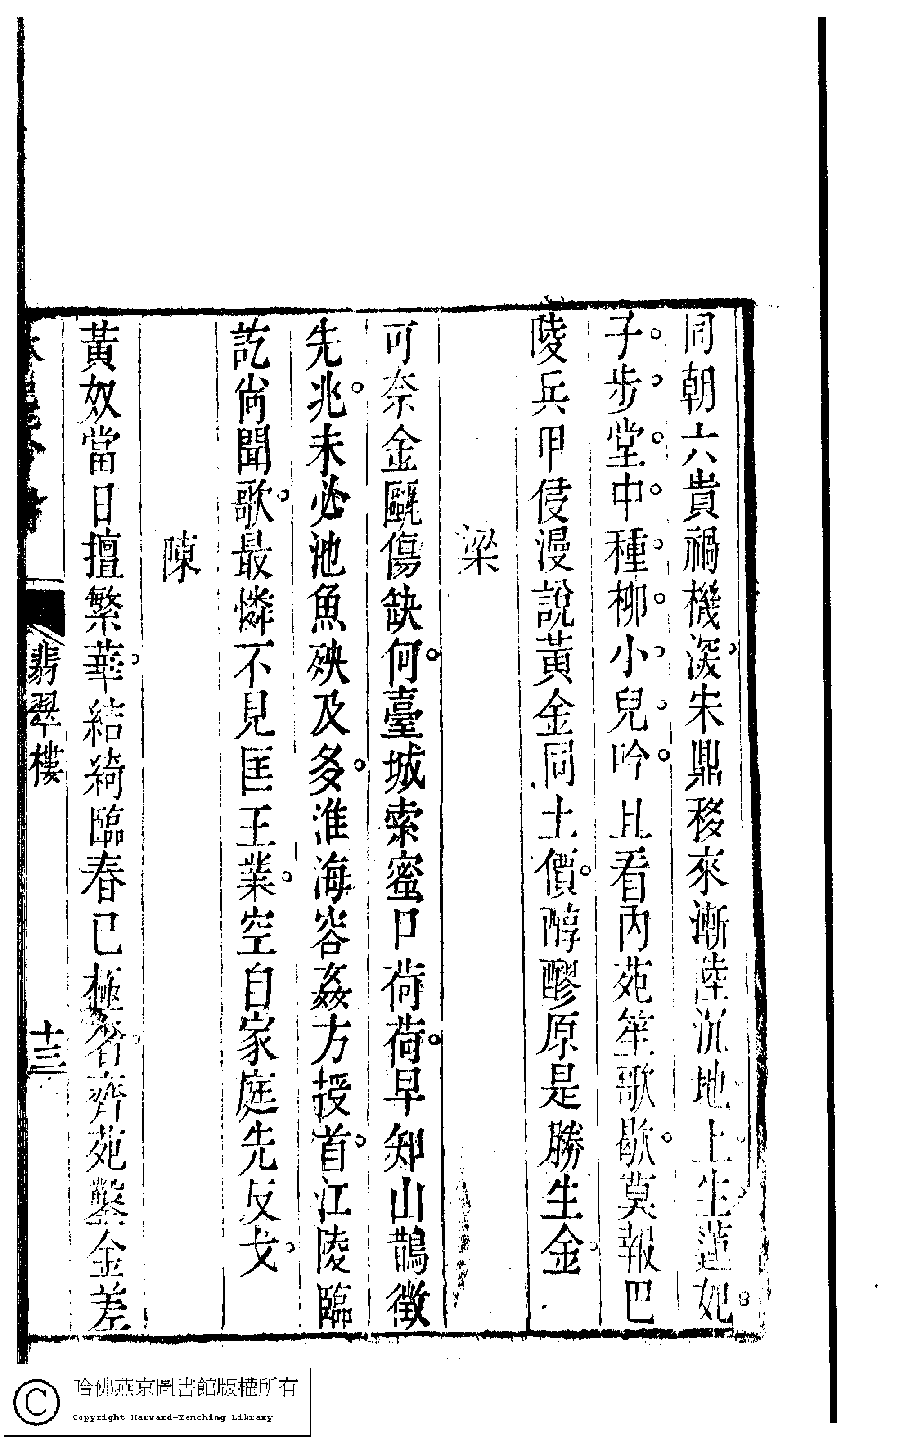 同朝六貴禍機深朱鼎移來漸陸沉地上生蓮妃
子步堂中種柳小兒吟且看內苑笙歌歇莫報巴
陵兵甲侵漫說黃金同土價醇醪原是勝生金
梁
可奈金甌傷缺何臺城索蜜口荷荷早知山鵲徵
先兆未必池魚殃及多淮海容姦方授首江陵臨
訖尙聞歌最憐不見匡王業空自家庭先反戈
陳
黃奴當日擅繁華結綺臨春已極奢齊苑鑿金差
翡翠樓
十三
哈佛燕京圖書館版權所有
Copyright Harvard-Yenching Library